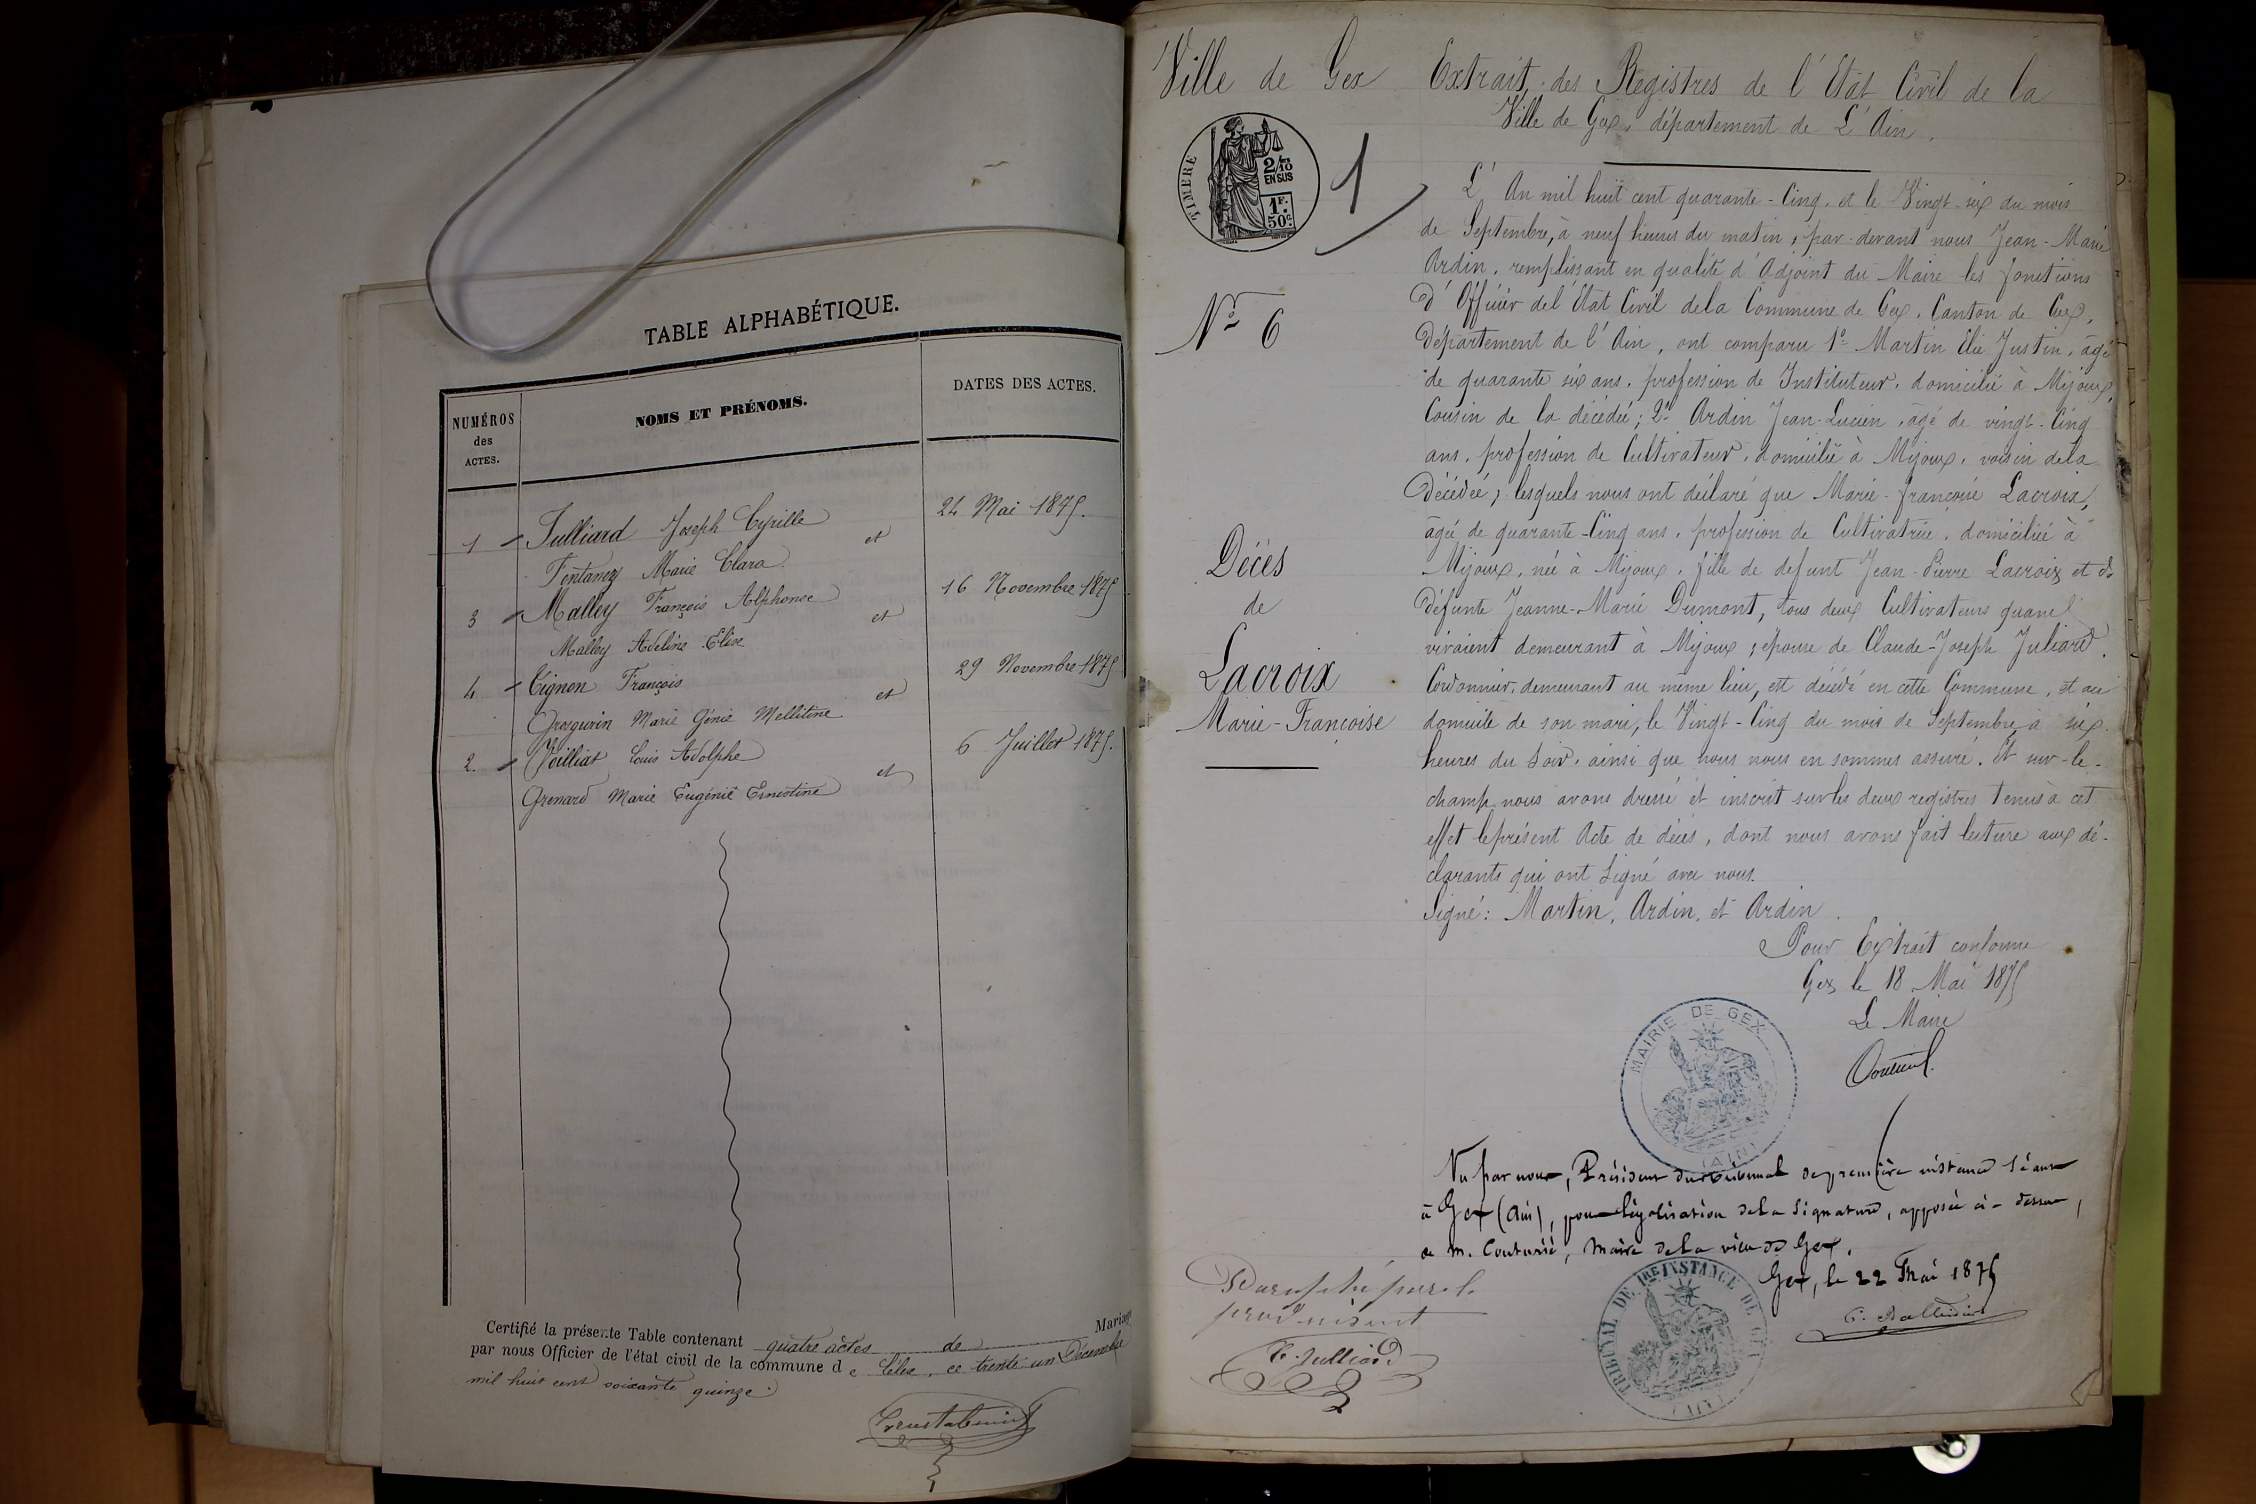 TABLE ALPHABÉTIQUE.
NUMÉROS
des
ACTES.
NOMS ET PRÉNOMS.
DATES DES ACTES.
1 Julliard Joseph Cyrille et 24 Mai 1875.
Fontanez Marie Clara
3 Malley François Alphonse et 16 Novembre 1875
Malley Adeline Elise
4 Gignon François et 29 Novembre 1875
Marie Génie Mellitine
2 Louis Adolphe et 6 Juillet 1875.
Grenard Marie Eugénie Ernestine
Certifié la présente Table contenant quatre actes de Mariage
par nous Officier de l'état civil de la commune de ce trente-un Décembre
mil huit cent soixante quinze.
Ville de Gex
TIMBRE
2/10
EN SUS
1F.
50c.
1
No 6
Décès
de
Lacroix
Marie-Françoise
Extrait des Registres de l'Etat Civil de la
Ville de Gex, département de L'Ain.
L'An mil huit cent quarante-Cinq, et le Vingt-six du mois
de Septembre, à neuf heures du matin, par-devant nous Jean-Marie
Ardin, remplissant en qualité d'Adjoint du Maire les fonctions
d'Officier de l'Etat Civil de la Commune de Gex, Canton de Gex,
département de l'Ain, ont comparu 1º Martin Elie Justin, âgé
de quarante six ans, profession de Instituteur, domicilié à Mijoux,
Cousin de la décédée; 2º Ardin Jean-Lucien, âgé de vingt-Cinq
ans, profession de Cultivateur, domicilié à Mijoux, voisin de la
Décédée, lesquels nous ont déclaré que Marie-françoise Lacroix,
âgée de quarante-Cinq ans, profession de Cultivatrice, domiciliée à
Mijoux, née à Mijoux, fille de defunt Jean-Pierre Lacroix et de
défunte Jeanne-Marie Dumont, tous deux Cultivateurs quand
vivaient demeurant à Mijoux, epouse de Claude-Joseph Juliard,
Cordonnier, demeurant au même lieu, est décédé en cette Commune, et au
domicile de son mari, le Vingt-Cinq du mois de Septembre à six
heures du Soir, ainsi que nous nous en sommes assuré. Et sur-le-
champ nous avons dressé et inscrit sur les deux registres tenus à cet
effet le présent Acte de décès, dont nous avons fait lecture aux dé-
clarants qui ont Signé avec nous.
Signé: Martin, Ardin, et Ardin.
Pour Extrait conforme
Gex le 18 Mai 1875
Le Maire
MAIRIE DE GEX
(AIN)
Vu par nous, Président du tribunal de première instance séant
à Gex (Ain), pour légalisation de la Signature, apposée ci-dessus,
de M. Couturié, Maire de la ville de Gex.
Gex, le 22 Mai 1875
TRIBUNAL DE 1RE INSTANCE DE GEX
(AIN)
par le
produisant
C. Julliard